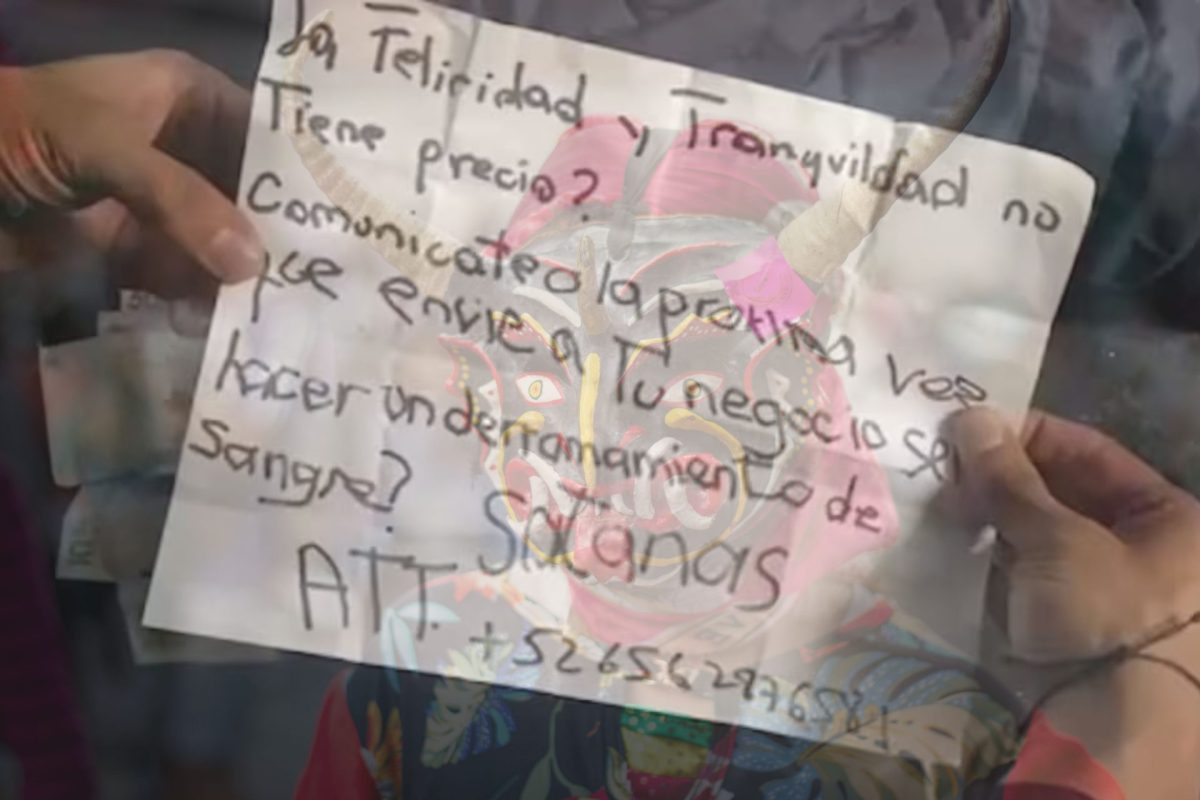 La Felicidad y Tranquildad no
Tiene precio?
Comunicate a la protima vez
que envie a Tu negocio sera
hacer un derramamiento de
Sangre?
ATT. Satanas
+526562976581